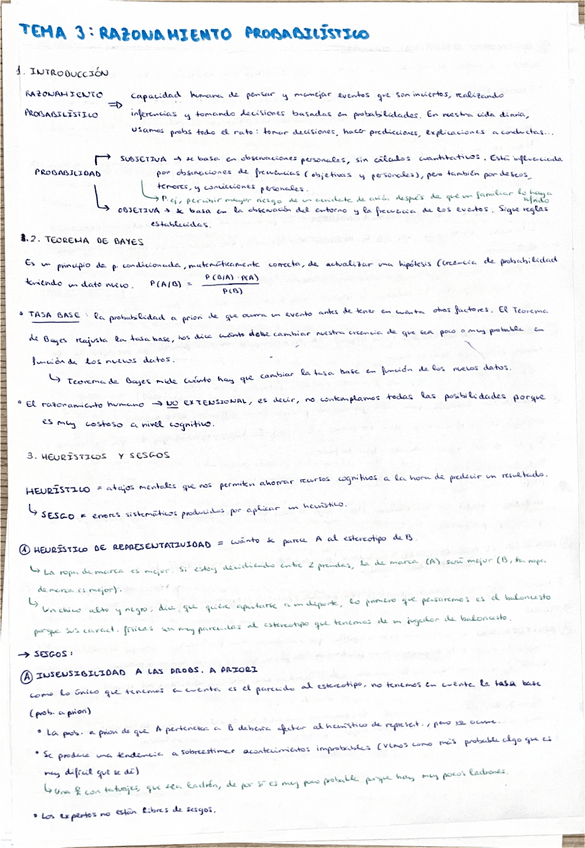 TEMA 3: RAZONAMIENTO PROBABILÍSTICO
1. INTRODUCCIÓN
RAZONAMIENTO PROBABILÍSTICO ⇒ capacidad humana de pensar y manejar eventos que son inciertos, realizando
inferencias y tomando decisiones basadas en probabilidades. En nuestra vida diaria,
usamos probs todo el rato: tomar decisiones, hacer predicciones, explicaciones a conductas...
PROBABILIDAD
SUBJETIVA → se basa en observaciones personales, sin cálculos cuantitativos. Está influenciada
por observaciones de frecuencias (objetivas y personales), pero también por deseos,
temores, y condiciones personales.
↳ P. ej, percibir mayor riesgo de un accidente de avión después de que un familiar lo haya
sufrido
OBJETIVA → se basa en la observación del entorno y la frecuencia de los eventos. Sigue reglas
establecidas.
2. TEOREMA DE BAYES
Es un principio de p condicionada, matemáticamente correcta, de actualizar una hipótesis (creencia de probabilidad
teniendo un dato nuevo. P(A/B) = P(B/A) · P(A) / P(B)
* TASA BASE: la probabilidad a priori de que ocurra un evento antes de tener en cuenta otros factores. El Teorema
de Bayes reajusta la tasa base, nos dice cuánto debe cambiar nuestra creencia de que sea poco o muy probable en
función de los nuevos datos.
↳ Teorema de Bayes mide cuánto hay que cambiar la tasa base en función de los nuevos datos.
* El razonamiento humano → NO EXTENSIONAL, es decir, no contemplamos todas las posibilidades porque
es muy costoso a nivel cognitivo.
3. HEURÍSTICOS Y SESGOS
HEURÍSTICO = atajos mentales que nos permiten ahorrar recursos cognitivos a la hora de predecir un resultado.
↳ SESGO = errores sistemáticos producidos por aplicar un heurístico.
① HEURÍSTICO DE REPRESENTATIVIDAD = cuánto se parece A al estereotipo de B.
↳ La ropa de marca es mejor. Si estoy decidiendo entre 2 prendas, la de marca (A) será mejor (B, la ropa
de marca es mejor).
↳ Un chico alto y negro, dice que quiere apuntarse a un deporte, lo primero que pensaremos es el baloncesto
porque sus caract. físicas son muy parecidas al estereotipo que tenemos de un jugador de baloncesto.
→ SESGOS:
Ⓐ INSENSIBILIDAD A LAS PROBS. A PRIORI
como lo único que tenemos en cuenta es el parecido al estereotipo, no tenemos en cuenta la tasa base
(prob. a priori)
* La prob. a priori de que A pertenezca a B debería afectar al heurístico de represent., pero no ocurre.
* Se produce una tendencia a sobreestimar acontecimientos improbables (vemos como más probable algo que es
muy difícil que se dé)
↳ Una con tatuajes, que sea ladrón, de por sí es muy poco probable porque hay muy pocos ladrones.
* Los expertos no están libres de sesgos.